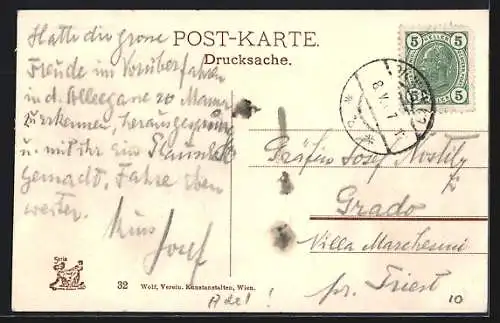 POST-KARTE.
Drucksache.
Hatte die grosse
Freude im Vorüberfahren
in d. Alleegasse 20 Mama
zu erkennen,
u. mit ihr ein
gemacht. Fahre eben
weiter.
Josef
5 HELLER 5
5 5
8 V. 7
Gräfin Josef Nostitz
Grado
Villa Marchesini
pr. Triest
Stria
32 Wolf, Verein. Kunstanstalten, Wien.
Adel!
10